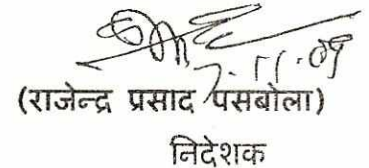 7.11.09
(राजेन्द्र प्रसाद पसबोला)
निदेशक